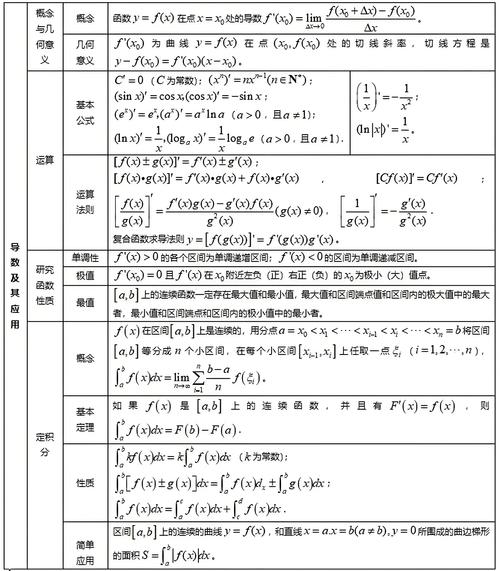 导数及其应用
概念与几何意义
概念
函数 y = f(x) 在点 x = x₀ 处的导数 f'(x₀) = lim_{Δx→0} [f(x₀ + Δx) − f(x₀)] / Δx 。
几何意义
f'(x₀) 为曲线 y = f(x) 在点 (x₀, f(x₀) 处的切线斜率，切线方程是
y − f(x₀) = f'(x₀)(x − x₀)。
运算
基本公式
C' = 0（C 为常数）；(xⁿ)' = nxⁿ⁻¹(n ∈ N*)；
(sin x)' = cos x, (cos x)' = −sin x；
(eˣ)' = eˣ, (aˣ)' = aˣ ln a（a > 0，且 a ≠ 1）；
(ln x)' = 1/x, (logₐ x)' = (1/x) logₐ e（a > 0，且 a ≠ 1）.
(1/x)' = −1/x²；
(ln|x|)' = 1/x 。
运算法则
[f(x) ± g(x)]' = f'(x) ± g'(x)；
[f(x)•g(x)]' = f'(x)•g(x) + f(x)•g'(x) ， [Cf(x)]' = Cf'(x) ；
[f(x)/g(x)]' = [f'(x)g(x) − g'(x)f(x)] / g²(x) (g(x) ≠ 0)，[1/g(x)]' = −g'(x)/g²(x) .
复合函数求导法则 y = [f(g(x))]' = f'(g(x))g'(x)。
研究函数性质
单调性
f'(x) > 0 的各个区间为单调递增区间；f'(x) < 0 的区间为单调递减区间。
极值
f'(x₀) = 0 且 f'(x) 在 x₀ 附近左负（正）右正（负）的 x₀ 为极小（大）值点。
最值
[a,b] 上的连续函数一定存在最大值和最小值，最大值和区间端点值和区间内的极大值中的最大
者，最小值和区间端点和区间内的极小值中的最小者。
定积分
概念
f(x) 在区间 [a,b] 上是连续的，用分点 a = x₀ < x₁ < ⋯ < xᵢ₋₁ < xᵢ < ⋯ < xₙ = b 将区间
[a,b] 等分成 n 个小区间，在每个小区间 [xᵢ₋₁, xᵢ] 上任取一点 ξᵢ（i = 1,2,⋯,n），
∫ₐᵇ f(x)dx = lim_{n→∞} Σ_{i=1}^{n} (b−a)/n f(ξᵢ)。
基本定理
如果 f(x) 是 [a,b] 上的连续函数，并且有 F'(x) = f(x)，则
∫ₐᵇ f(x)dx = F(b) − F(a) .
性质
∫ₐᵇ kf(x)dx = k∫ₐᵇ f(x)dx（k 为常数）；
∫ₐᵇ [f(x) ± g(x)]dx = ∫ₐᵇ f(x)dₓ ± ∫ₐᵇ g(x)dx；
∫ₐᵇ f(x)dx = ∫ₐᶜ f(x)dx + ∫_c^d f(x)dx .
简单应用
区间 [a,b] 上的连续的曲线 y = f(x)，和直线 x = a.x = b(a ≠ b), y = 0 所围成的曲边梯形
的面积 S = ∫ₐᵇ |f(x)|dx。